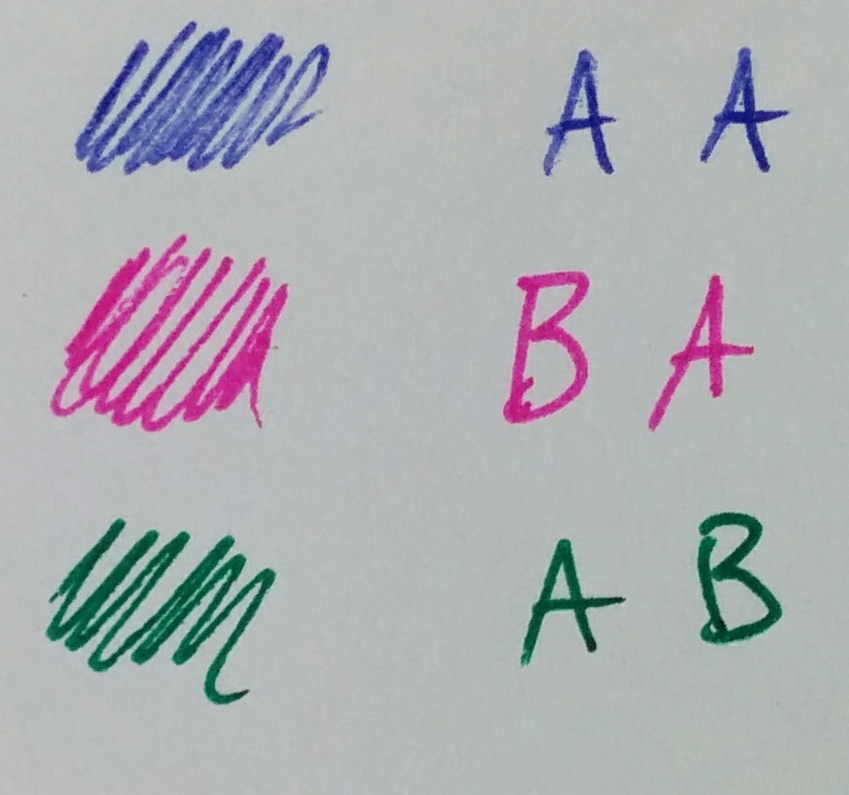 A A
B A
A B